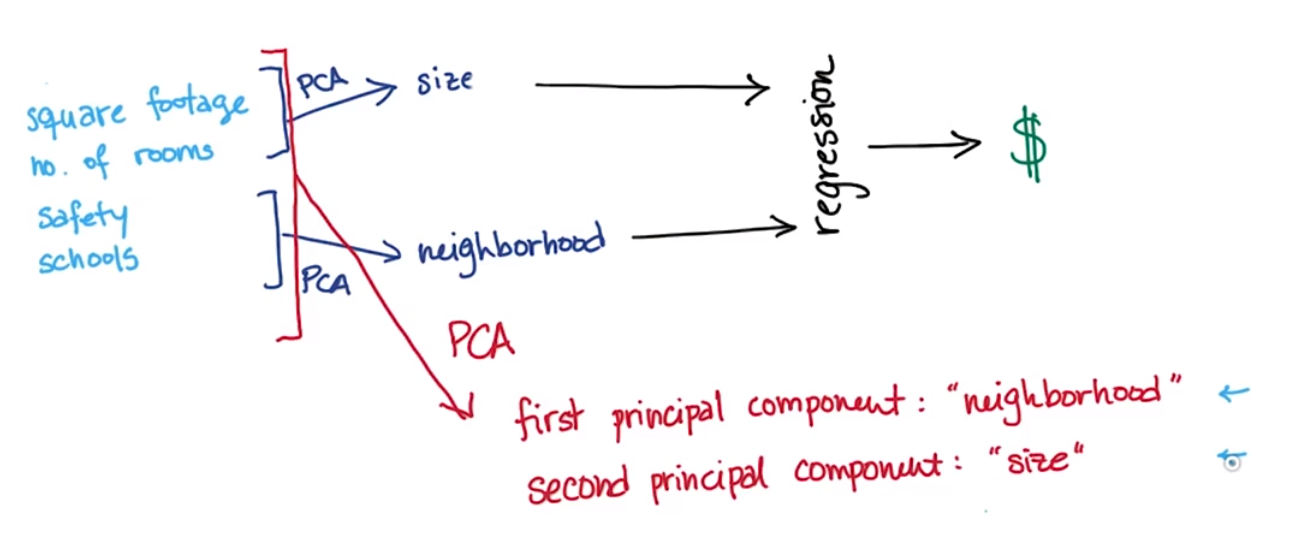 square footage
no. of rooms
safety
schools
PCA
size
PCA
neighborhood
regression
$
PCA
first principal component: "neighborhood" ←
second principal component: "size" ←